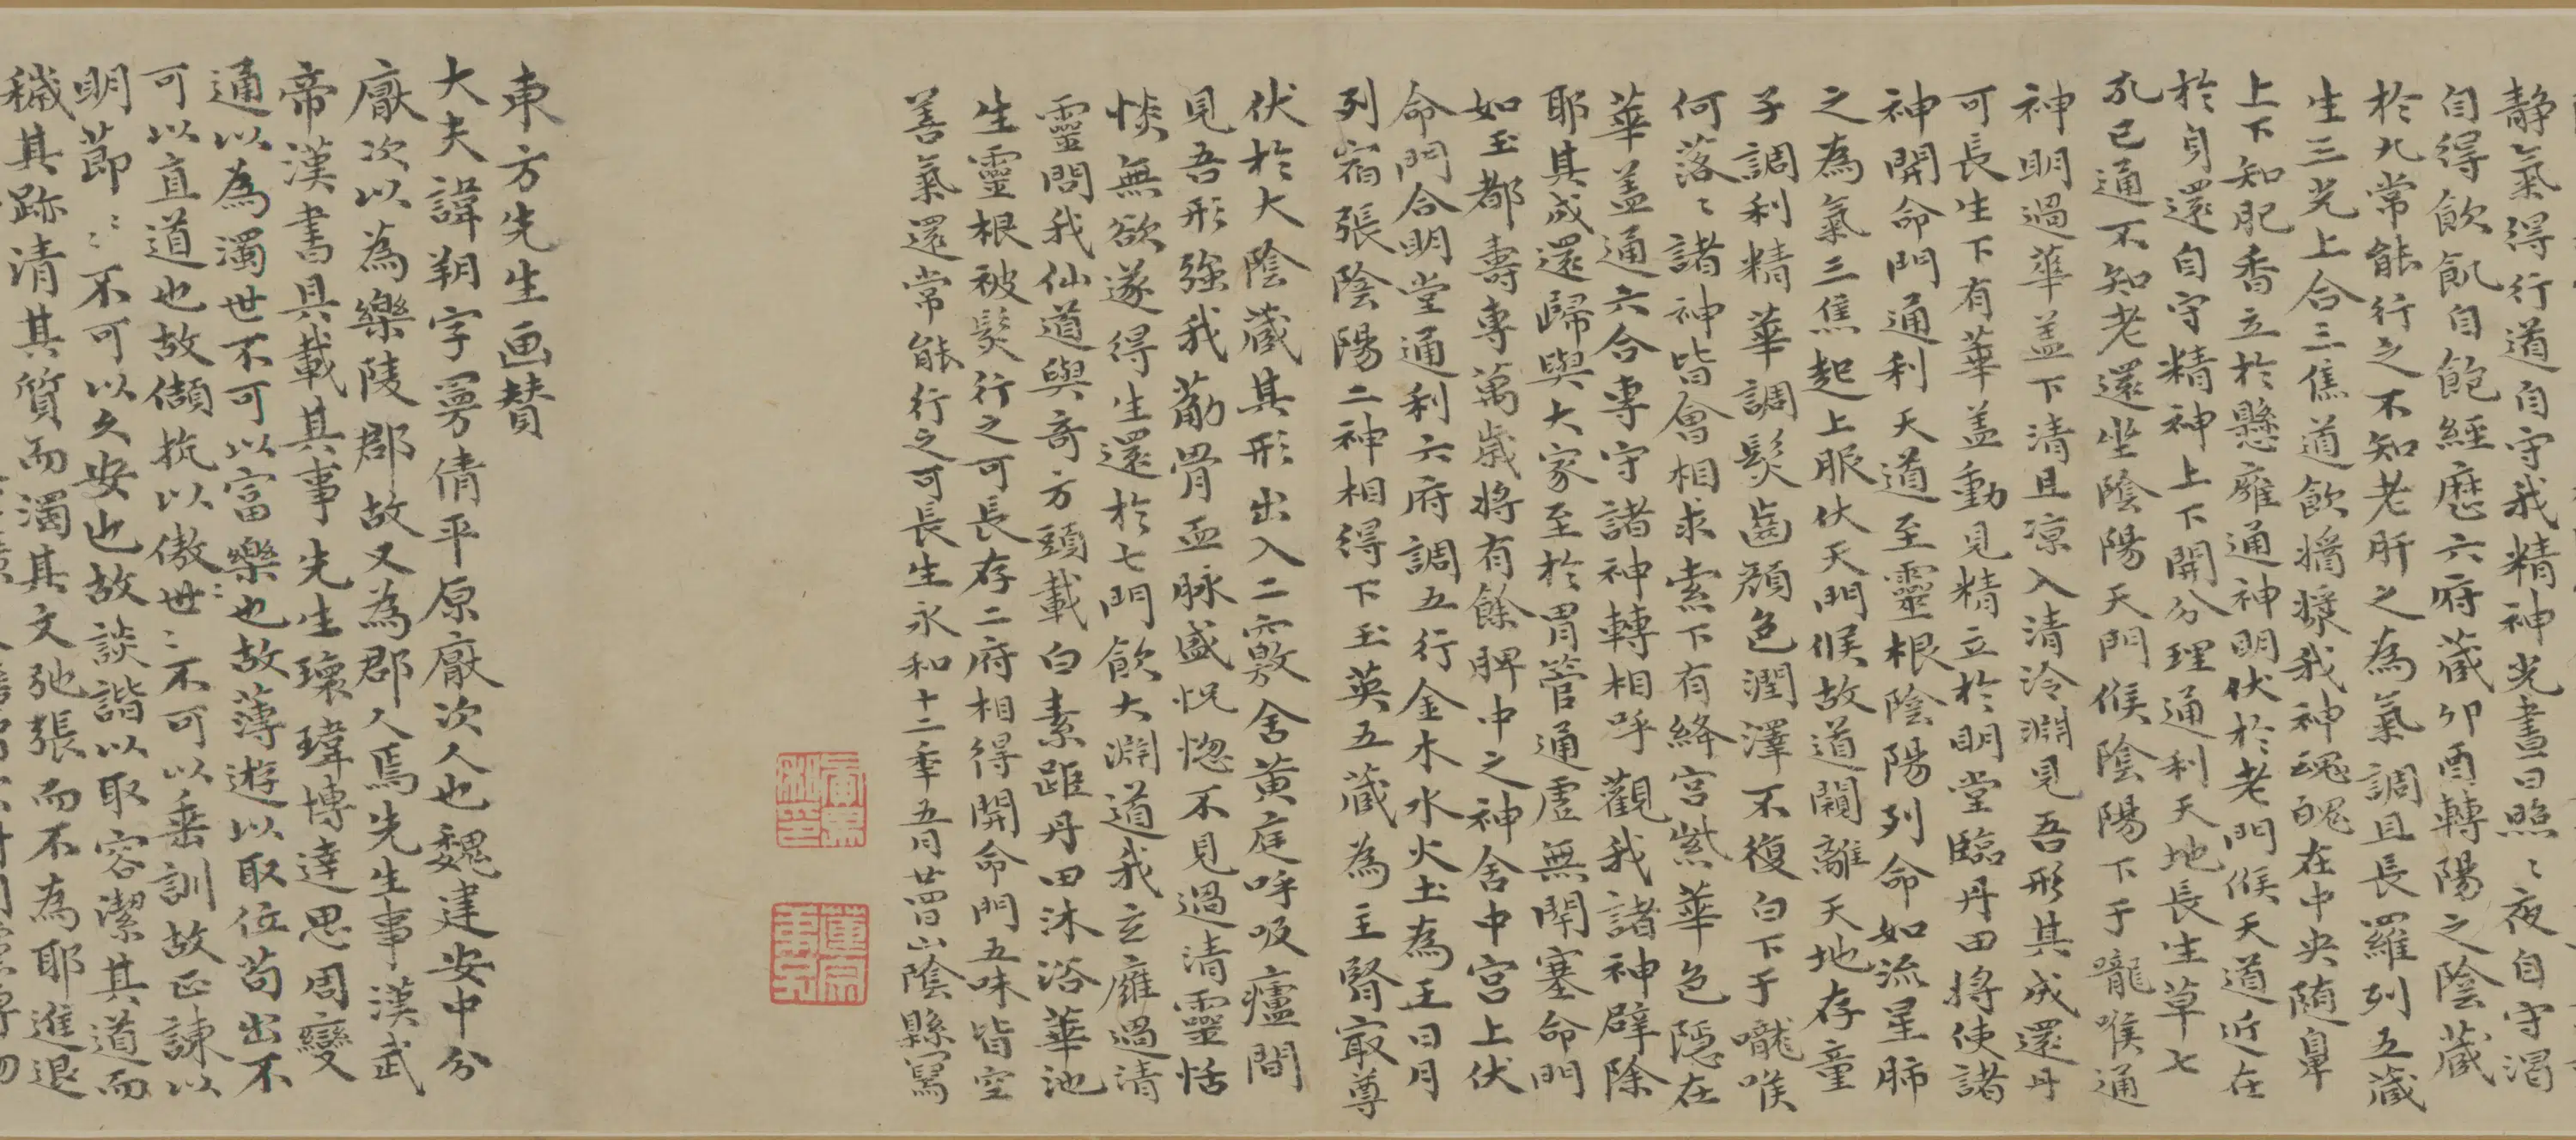 静氣得行道自守我精神光晝日照〻夜自守渴
自得飲飢自飽經歷六府藏卯酉轉陽之陰藏
於九常能行之不知老肝之為氣調且長羅列五藏
生三光上合三焦道飲醬漿我神魂魄在中央隨鼻
上下知肥香立於懸廱通神明伏於老門候天道近在
於身還自守精神上下開分理通利天地長生草七
孔已通不知老還坐陰陽天門候陰陽下于嚨喉通
神明過華盖下清且涼入清泠淵見吾形其成還丹
可長生下有華盖動見精立於明堂臨丹田將使諸
神開命門通利天道至靈根陰陽列命如流星肺
之為氣三焦起上服伏天門候故道闚離天地存童
子調利精華調髮齒顏色潤澤不復白下于嚨喉
何落〻諸神皆會相求索下有絳宮紫華色隱在
華盖通六合專守諸神轉相呼觀我諸神辟除
耶其成還歸與大家至於胃管通虛無閉塞命門
如玉都壽專萬歲將有餘脾中之神舍中宮上伏
命門合明堂通利六府調五行金木水火土為王日月
列宿張陰陽二神相得下玉英五藏為主腎最尊
伏於大陰藏其形出入二竅舍黄庭呼吸廬間
見吾形強我筋骨血脉盛怳惚不見過清靈恬
惔無欲遂得生還於七門飲大淵道我玄廱過清
靈問我仙道與奇方頭載白素距丹田沐浴華池
生靈根被髮行之可長存二府相得開命門五味皆至
善氣還常能行之可長生永和十二年五月廿四日山陰縣寫
東方先生画贊
大夫諱朔字曼倩平原厭次人也魏建安中分
厭次以為樂陵郡故又為郡人焉先生事漢武
帝漢書具載其事先生瓌瑋博達思周變
通以為濁世不可以富樂也故薄遊以取位苟出不
可以直道也故頡抗以傲世〻不可以垂訓故正諫以
明莭〻不可以久安也故談諧以取容潔其道而
穢其跡清其質而濁其文弛張而不為耶進退